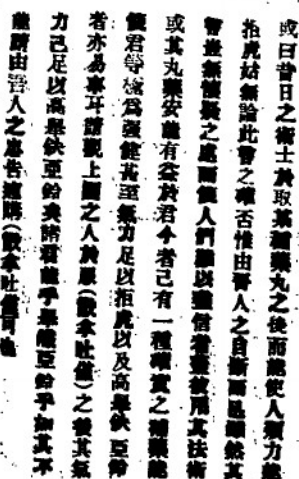 或曰昔日之術士於取某種藥丸之後而能使人類力能
拒虎姑無論此言之確否惟由吾人之目斷而
無懷疑之處而人們以信者用其法術
或某丸藥安能有益於君今者己有一種確實之補藥能
使君等境爲强健其至氣力足以拒虎以及高舉鉄亞鈴
者亦易事耳請觀上圖之人於服(散拿吐瑾)之後其氣
力己足以高舉鉄亞鈴矣諸君能乎舉此亞鈴乎如其不
能請由吾人之忠告速購(散拿吐瑾)可也